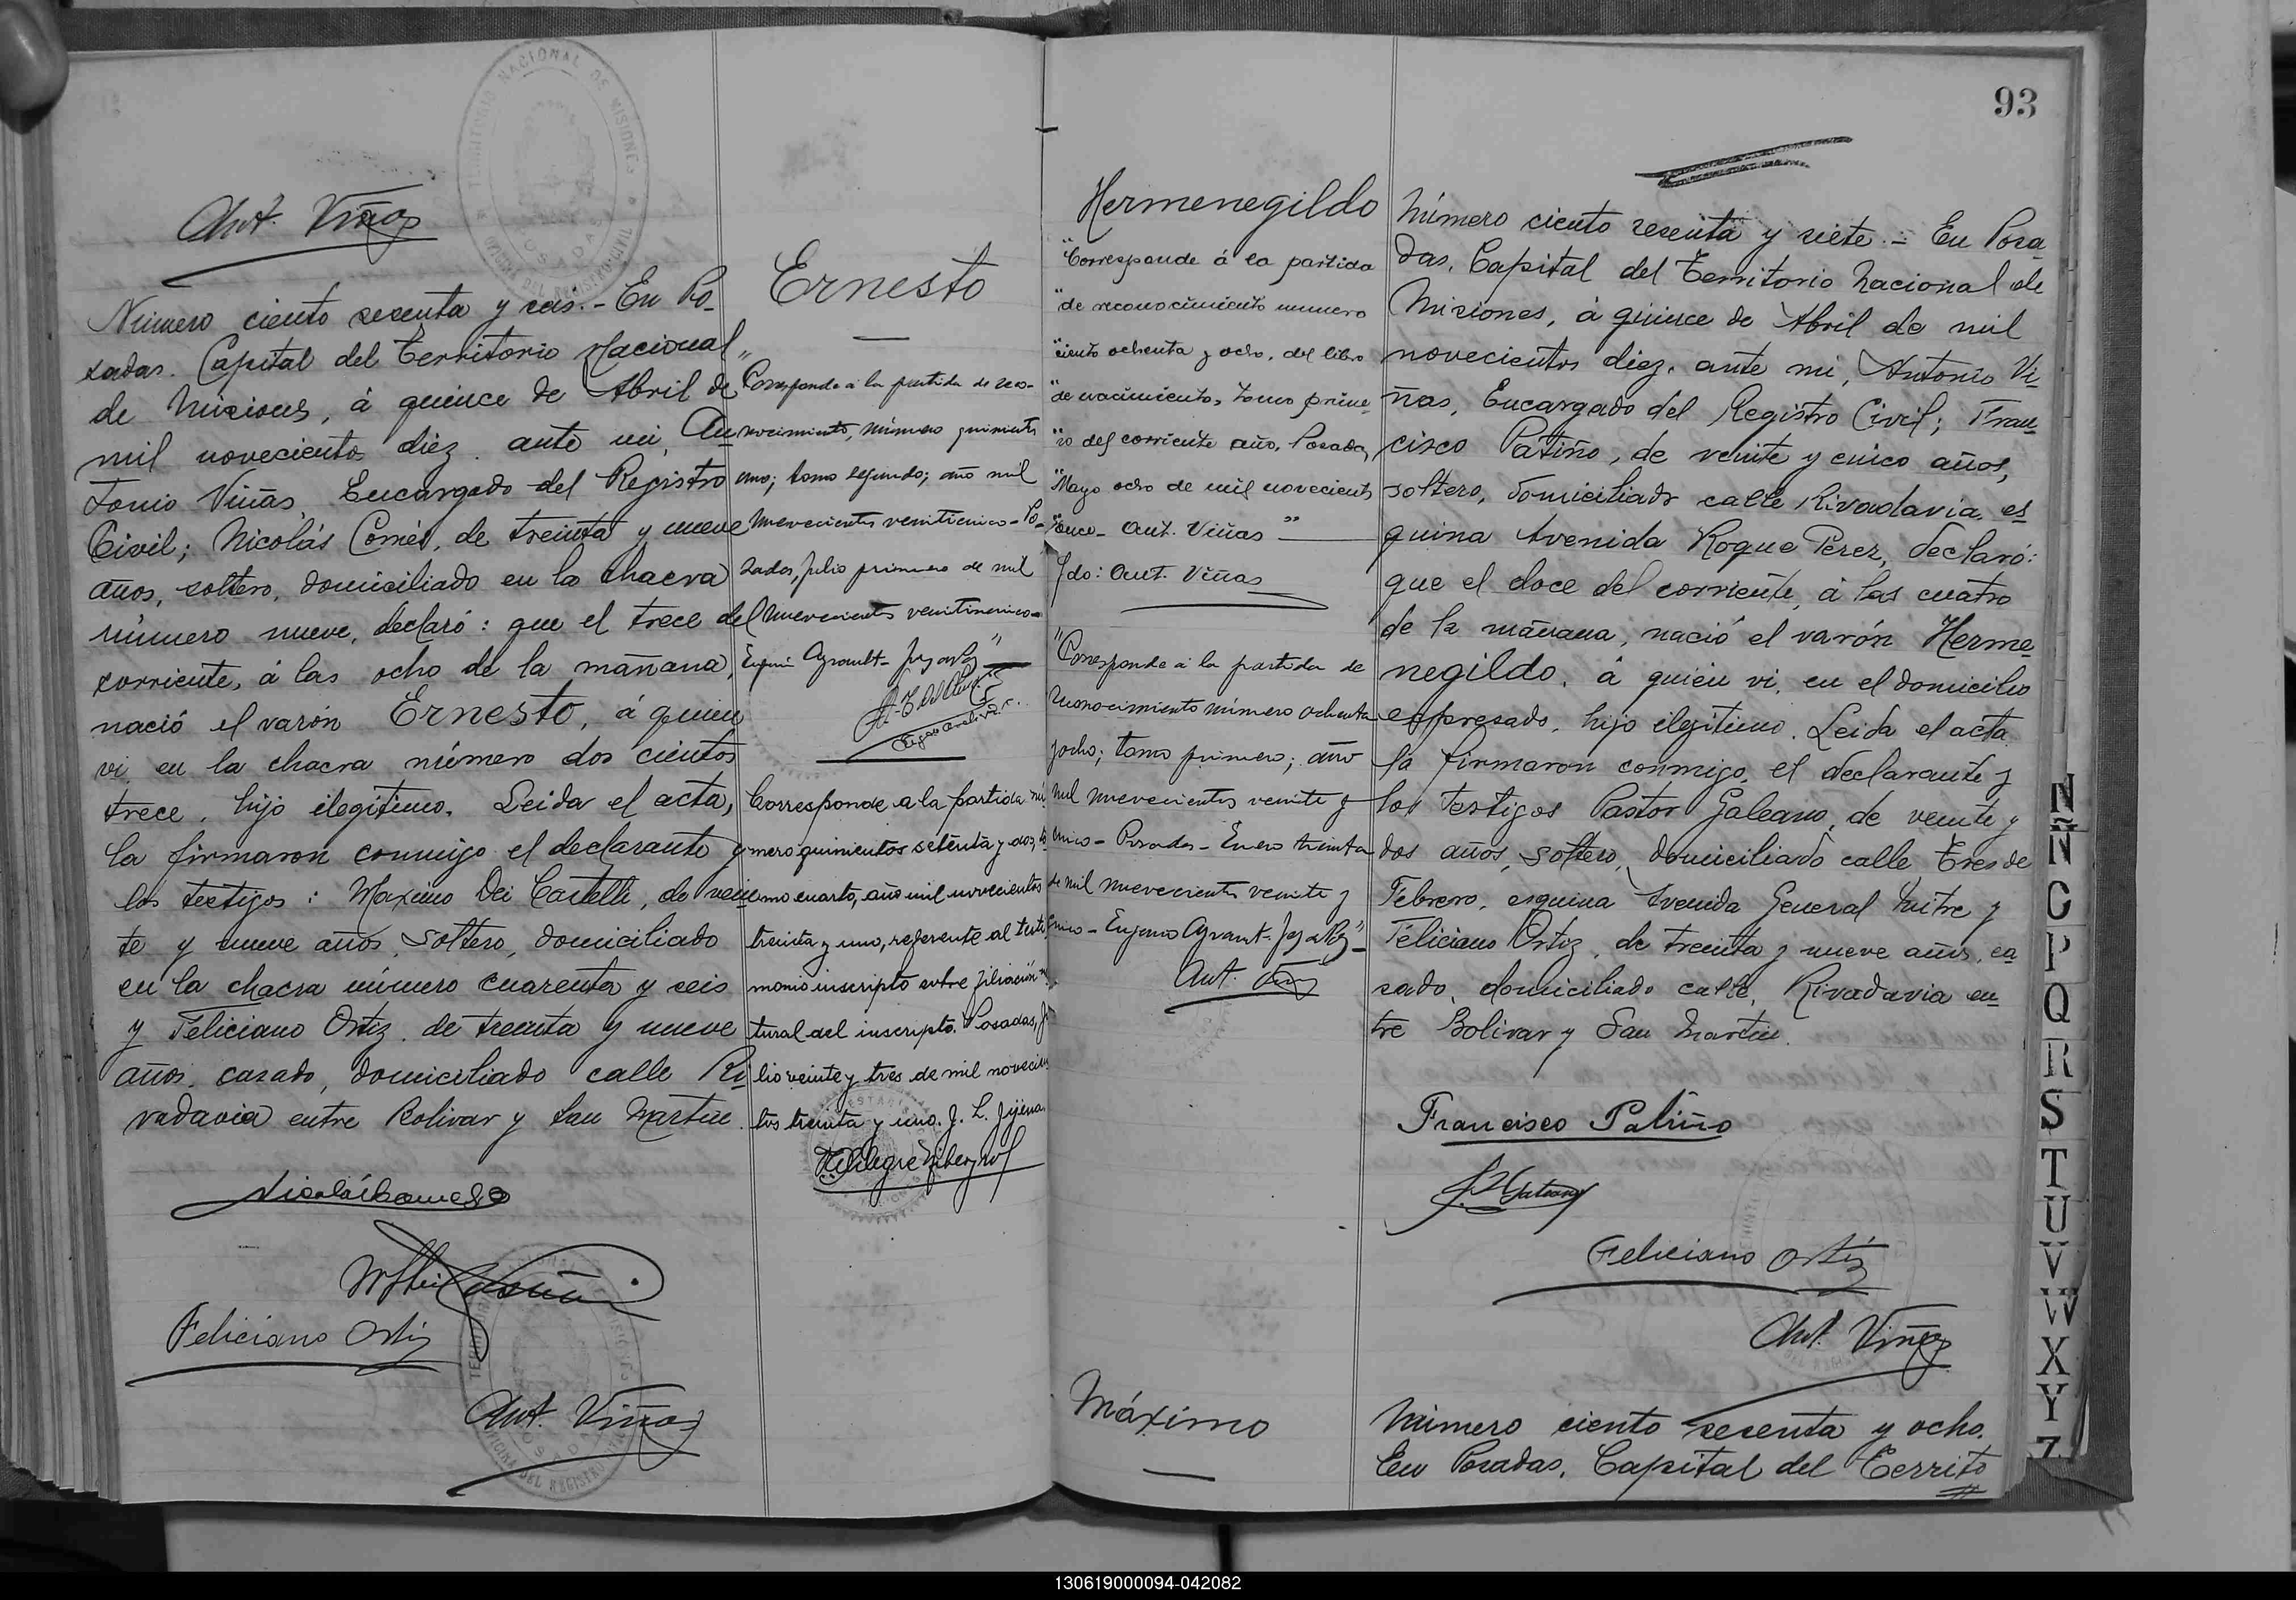 TERRITORIO NACIONAL DE MISIONES
OFICINA DEL REGISTRO CIVIL
POSADAS
Ant. Viñas
Número ciento sesenta y seis. - En Po-
sadas. Capital del Territorio Nacional
de Misiones, á quince de Abril de
mil novecientos diez. ante mi, An-
tonio Viñas, Encargado del Registro
Civil; Nicolás Comés, de treinta y nueve
años, soltero, domiciliado en la chacra
número nueve, declaró: que el trece del
corriente, á las ocho de la mañana,
nació el varón Ernesto, á quien
vi, en la chacra número dos cientos
trece, hijo ilegitimo. Leida el acta,
la firmaron conmigo el declarante y
los testigos: Maximo Dei Castelli, de vein-
te y nueve años, soltero, domiciliado
en la chacra número cuarenta y seis
y Feliciano Ortiz, de treinta y nueve
años, casado, domiciliado calle Ri-
vadavia entre Bolivar y San Martin.
Feliciano Ortiz
Ant. Viñas
Ernesto
"Corresponde á la partida de reco-
nocimiento, número quinientos
uno; tomo segundo; año mil
novecientos veinticinco - Po-
sadas, julio primero de mil
novecientos veinticinco -
Corresponde a la partida nú-
mero quinientos setenta y dos, to-
mo cuarto, año mil novecientos
treinta y uno, referente al testi-
monio inscripto sobre filiación na-
tural del inscripto. Posadas, Ju-
lio veinte y tres de mil novecien-
tos treinta y uno. J. L.
93
Hermenegildo
"Corresponde á la partida
"de reconocimiento numero
"ciento ochenta y ocho, del libro
"de nacimientos, tomo prime-
"ro del corriente año. Posadas,
"Mayo ocho de mil novecientos
"once - Ant. Viñas"
Fdo: Ant. Viñas
"Corresponde á la partida de
reconocimiento número ochenta
y ocho; tomo primero; año
mil novecientos veinte y
cinco - Posadas - Enero treinta
de mil novecientos veinte y
cinco -
Ant. Viñas
Número ciento sesenta y siete. - En Posa-
das, Capital del Territorio Nacional de
Misiones, á quince de Abril de mil
novecientos diez. ante mi, Antonio Vi-
ñas, Encargado del Registro Civil; Fran-
cisco Patiño, de veinte y cinco años,
soltero, domiciliado calle Rivadavia, es-
quina Avenida Roque Perez, declaró:
que el doce del corriente, á las cuatro
de la mañana, nació el varón Herme-
negildo, á quien vi, en el domicilio
expresado, hijo ilegitimo. Leida el acta
la firmaron conmigo, el declarante y
los testigos Pastor Galeano, de veinte y
dos años, soltero, domiciliado calle Tres de
Febrero, esquina Avenida General Mitre y
Feliciano Ortiz, de treinta y nueve años, ca-
sado, domiciliado calle, Rivadavia en-
tre Bolivar y San Martin.
Francisco Patiño
P. Galeano
Feliciano Ortiz
Ant. Viñas
Máximo
Número ciento sesenta y ocho.
En Posadas, Capital del Territo
N
Ñ
O
P
Q
R
S
T
U
V
W
X
Y
Z
130619000094-042082